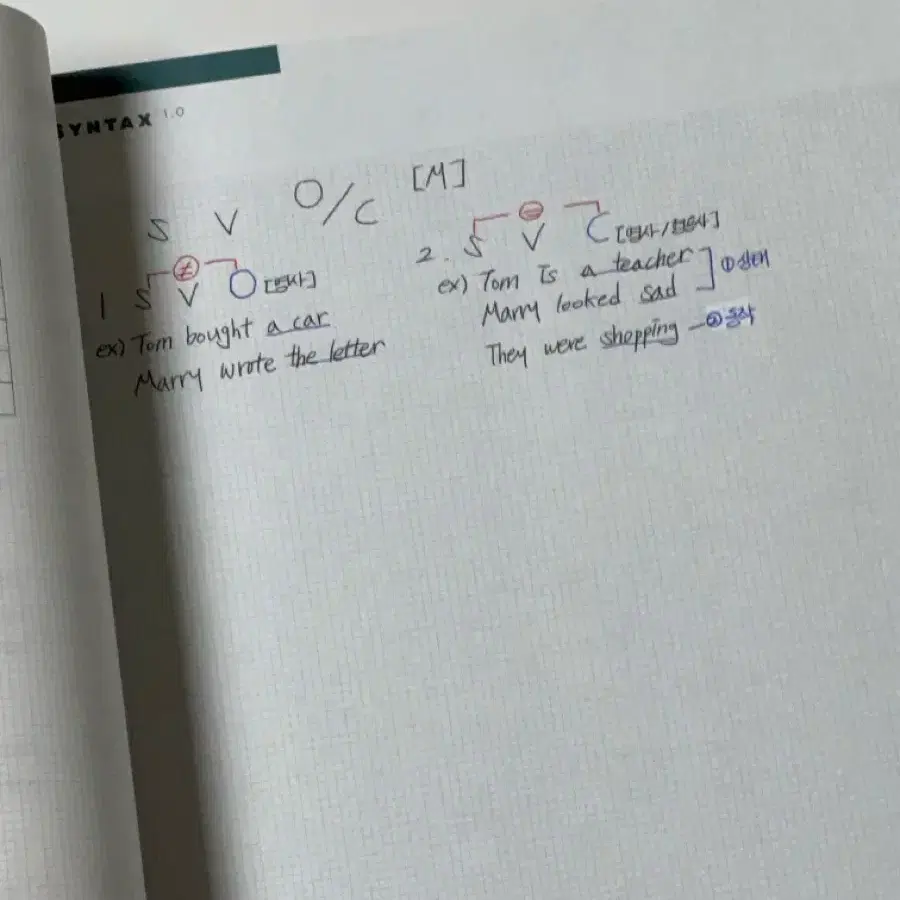 SYNTAX 1.0
S V O/C [M]
≠
1 S V O [명사]
ex) Tom bought a car
Marry wrote the letter
=
2. S V C [명사/형용사]
ex) Tom is a teacher
Marry looked sad ] ① 상태
They were shopping - ② 동작